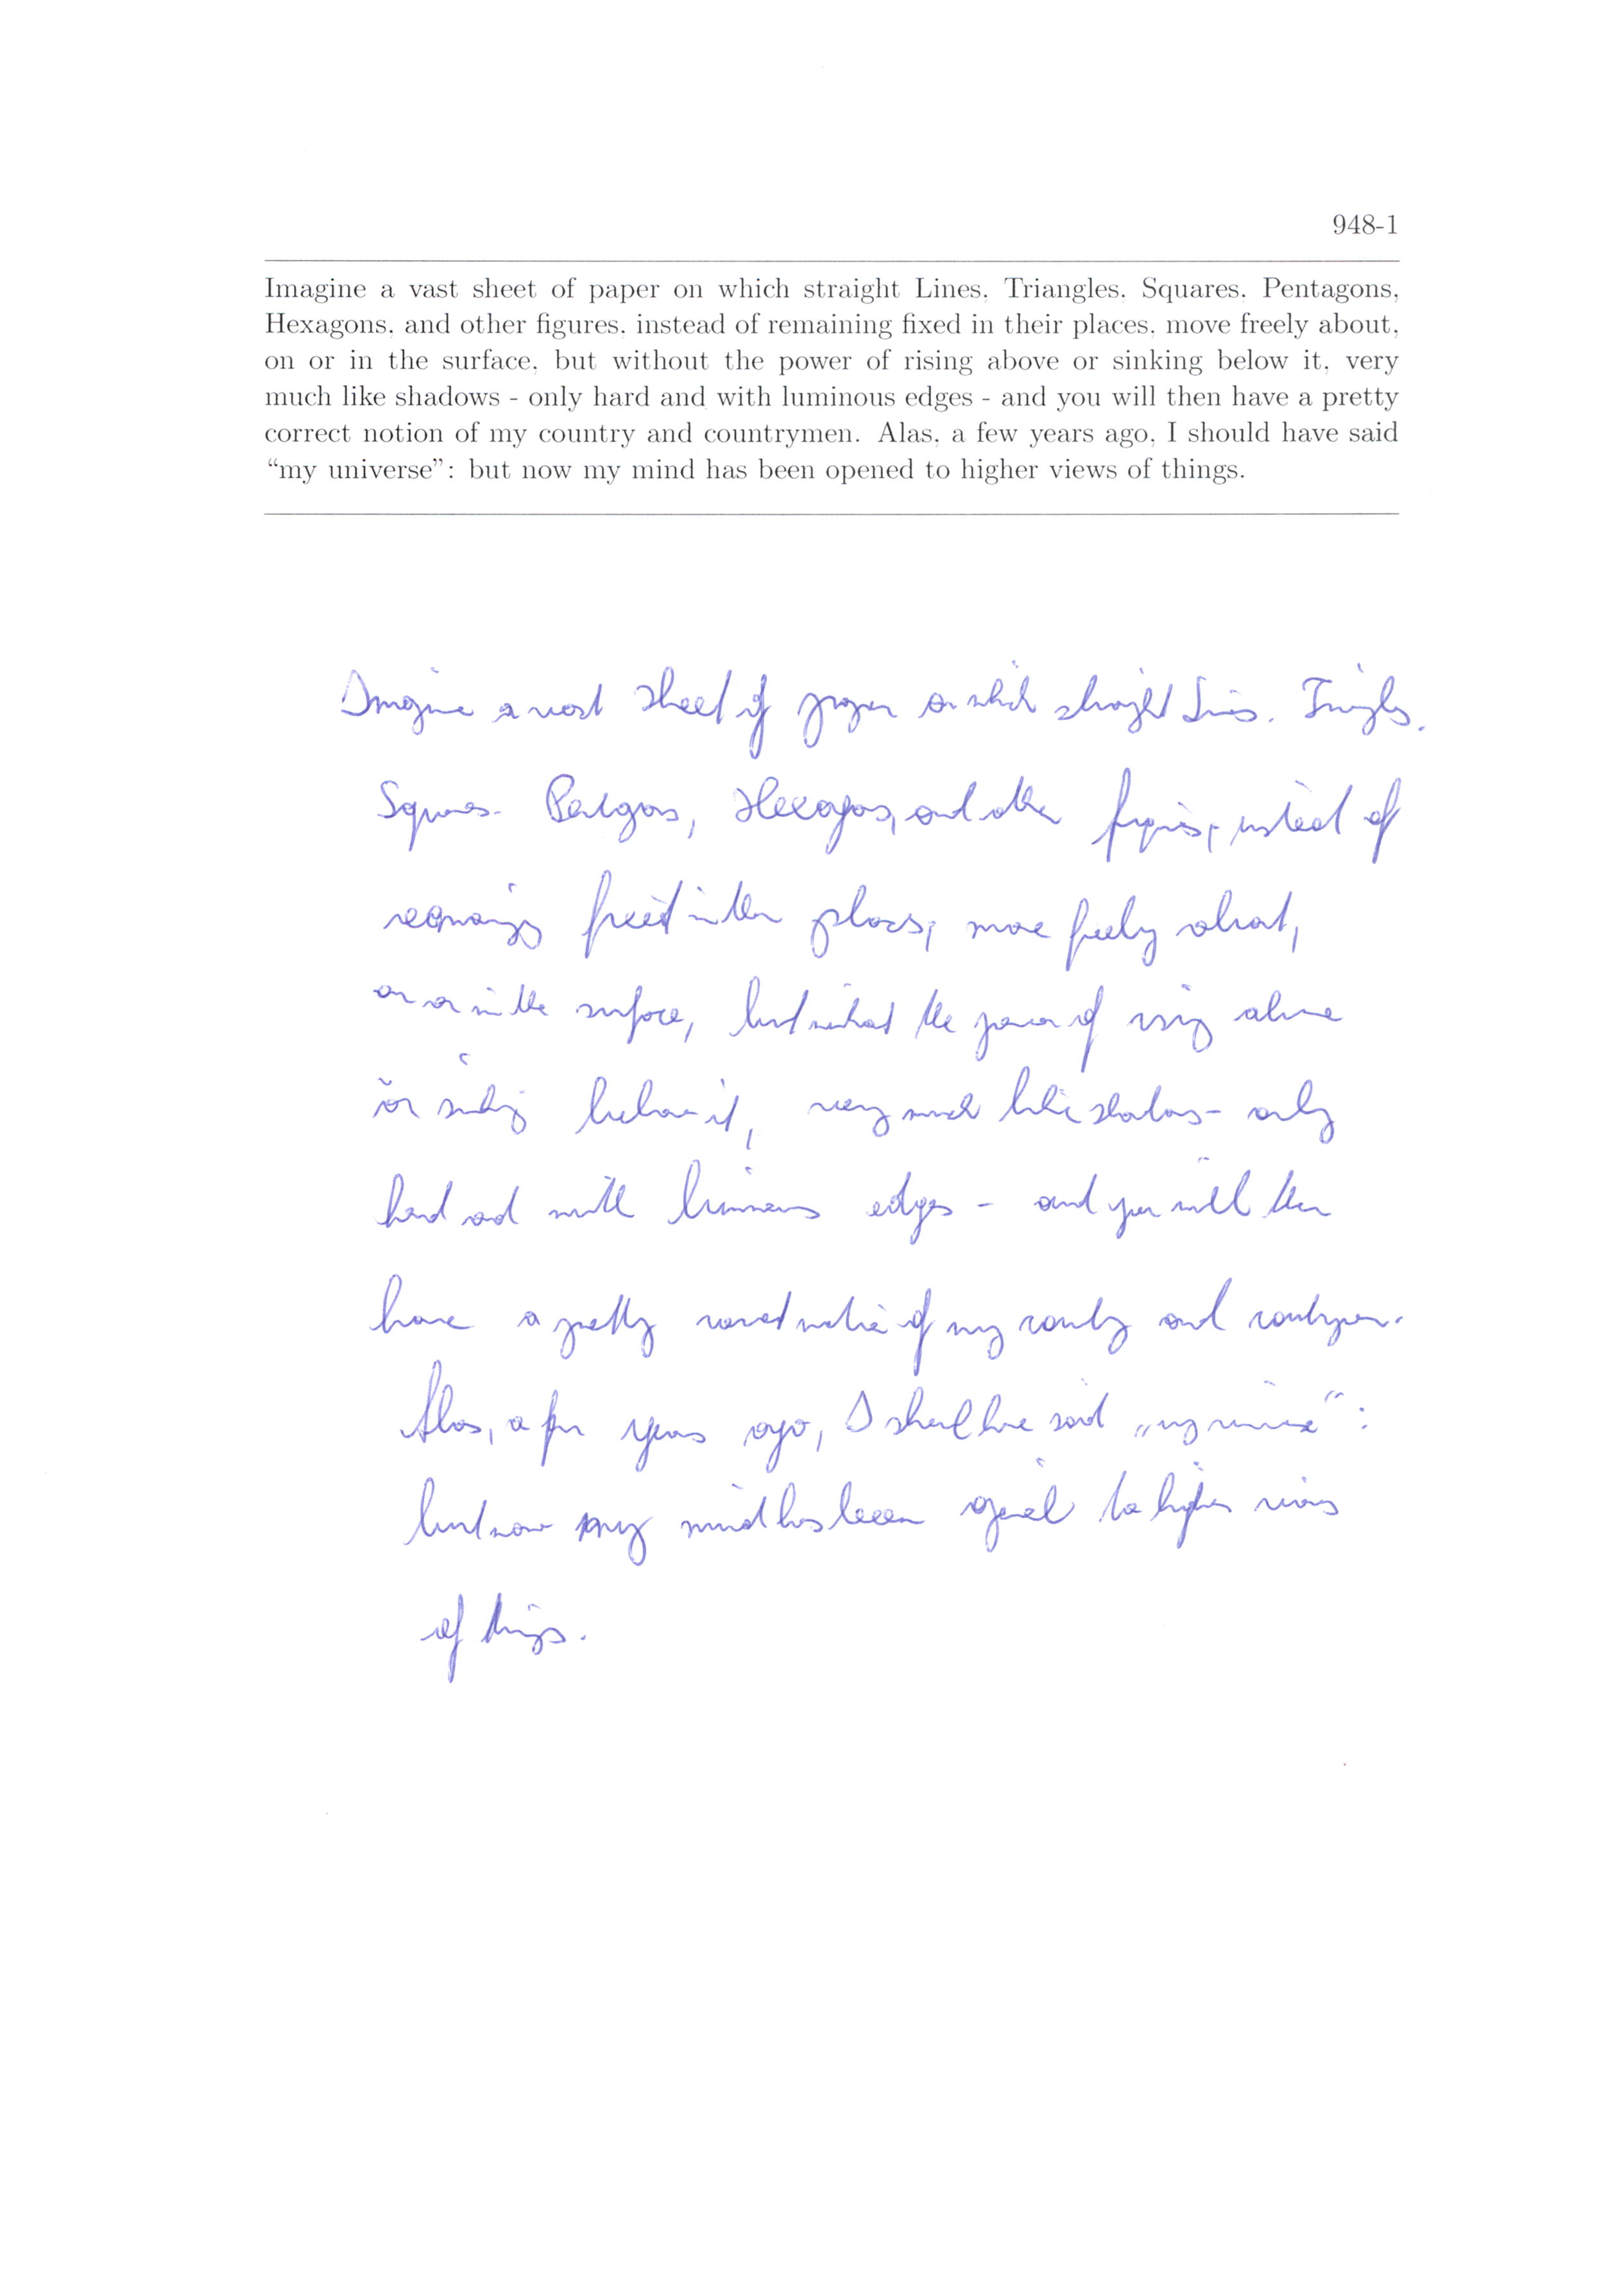 948-1
Imagine a vast sheet of paper on which straight Lines. Triangles. Squares. Pentagons,
Hexagons, and other figures, instead of remaining fixed in their places, move freely about,
on or in the surface, but without the power of rising above or sinking below it, very
much like shadows - only hard and with luminous edges - and you will then have a pretty
correct notion of my country and countrymen. Alas, a few years ago, I should have said
“my universe”: but now my mind has been opened to higher views of things.
Imagine a vast sheet of paper on which straight Lines. Triangles.
Squares. Pentagons, Hexagons, and other figures, instead of
remaining fixed in their places, move freely about,
on or in the surface, but without the power of rising above
or sinking below it, very much like shadows - only
hard and with luminous edges - and you will then
have a pretty correct notion of my country and countrymen.
Alas, a few years ago, I should have said „my universe“:
but now my mind has been opened to higher views
of things.